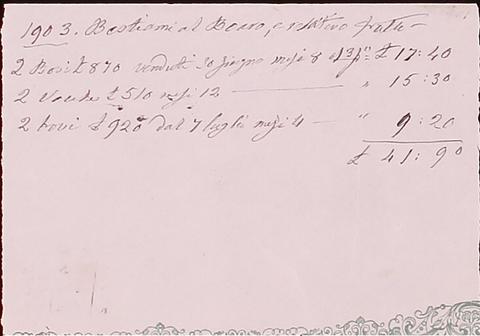 1903. Bestiami al Bosso, e relativo frutto
2 Bovi £ 870 venduti 30 giugno mesi 8 al 3 p% £ 17:40
2 Vacche £ 510 mesi 12 — " 15:30
2 bovi £ 920 dal 7 luglio mesi 4 — " 9:20
£ 41:90